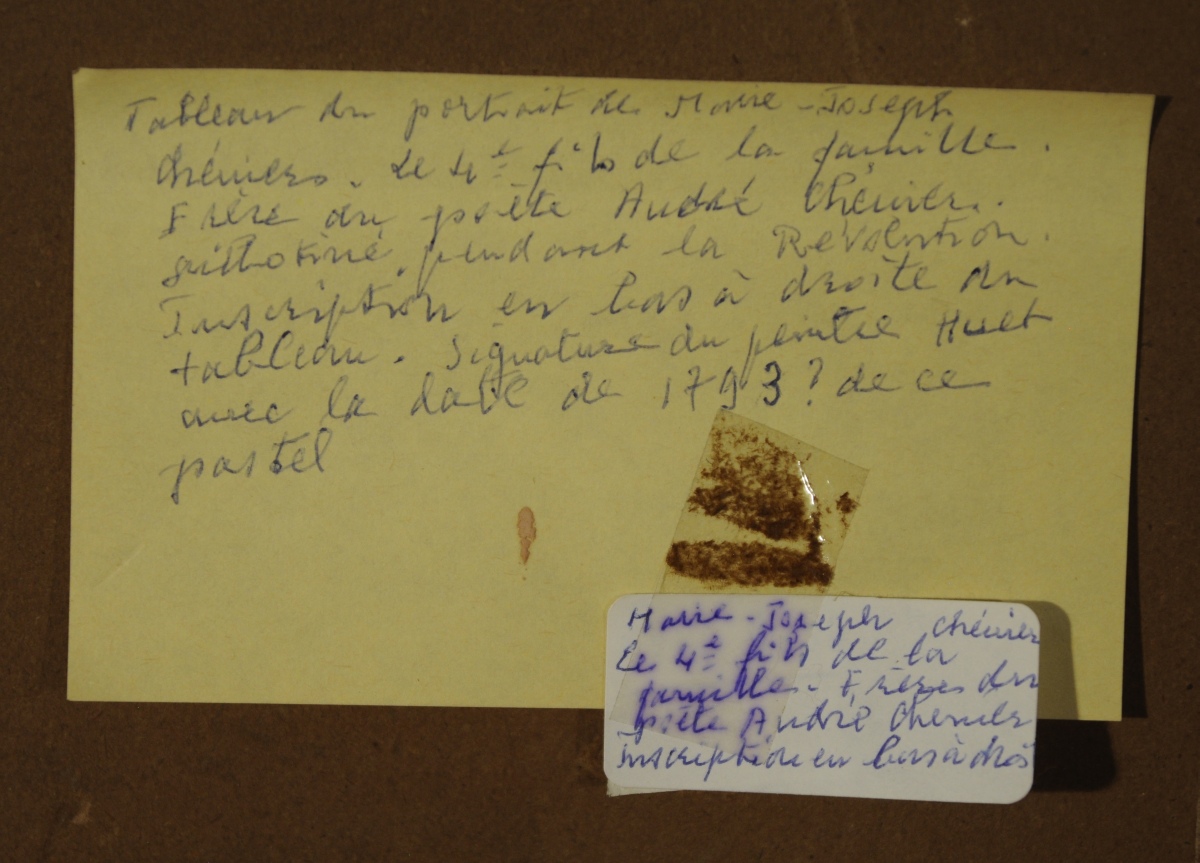 Tableau du portrait de Marie-Joseph
Chéniers. Le 4e fils de la famille.
Frère du poète André Chénier.
guillotiné, pendant la Révolution.
Inscription en bas à droite du
tableau. Signature du peintre Huet
avec la date de 1793? de ce
pastel
Marie-Joseph Chénier
Le 4e fils de la
famille. Frères du
poète André Chénier
inscription en bas à droi